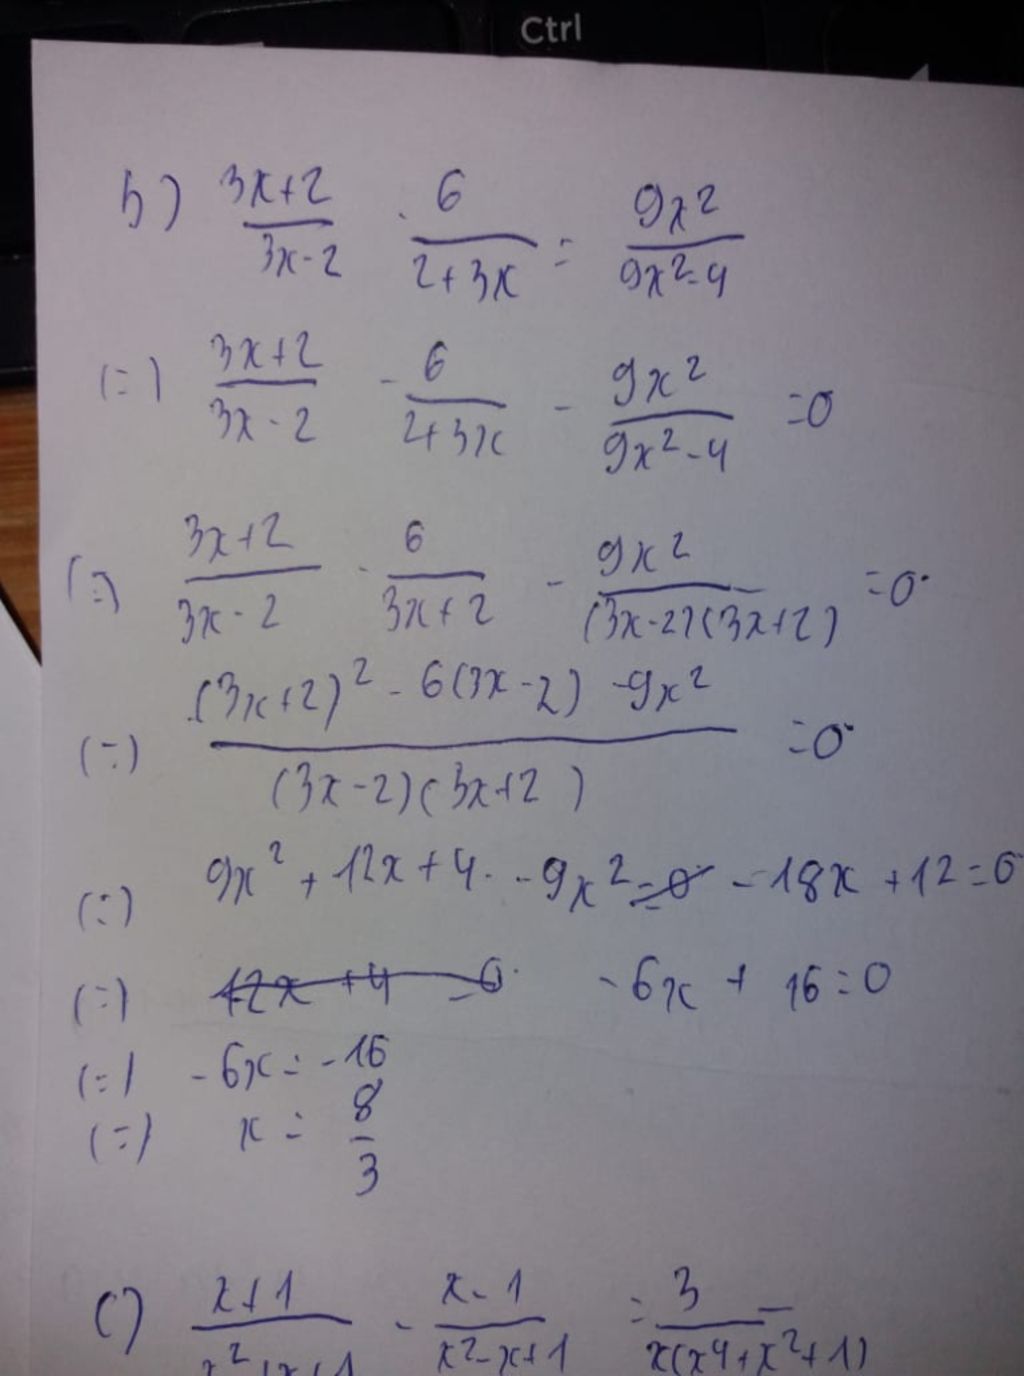 Ctrl
b) \frac{3x+2}{3x-2} - \frac{6}{2+3x} = \frac{9x^2}{9x^2-4}
(=) \frac{3x+2}{3x-2} - \frac{6}{2+3x} - \frac{9x^2}{9x^2-4} = 0
(=) \frac{3x+2}{3x-2} - \frac{6}{3x+2} - \frac{9x^2}{(3x-2)(3x+2)} = 0
(=) \frac{(3x+2)^2 - 6(3x-2) - 9x^2}{(3x-2)(3x+2)} = 0
(=) 9x^2 + 12x + 4 - 9x^2 = 0 - 18x + 12 = 0
(=) 12x + 4 = 0 -6x + 16 = 0
(=) -6x = -16
(=) x = \frac{8}{3}
c) \frac{x+1}{x^2+x+1} - \frac{x-1}{x^2-x+1} = \frac{3}{x(x^4+x^2+1)}